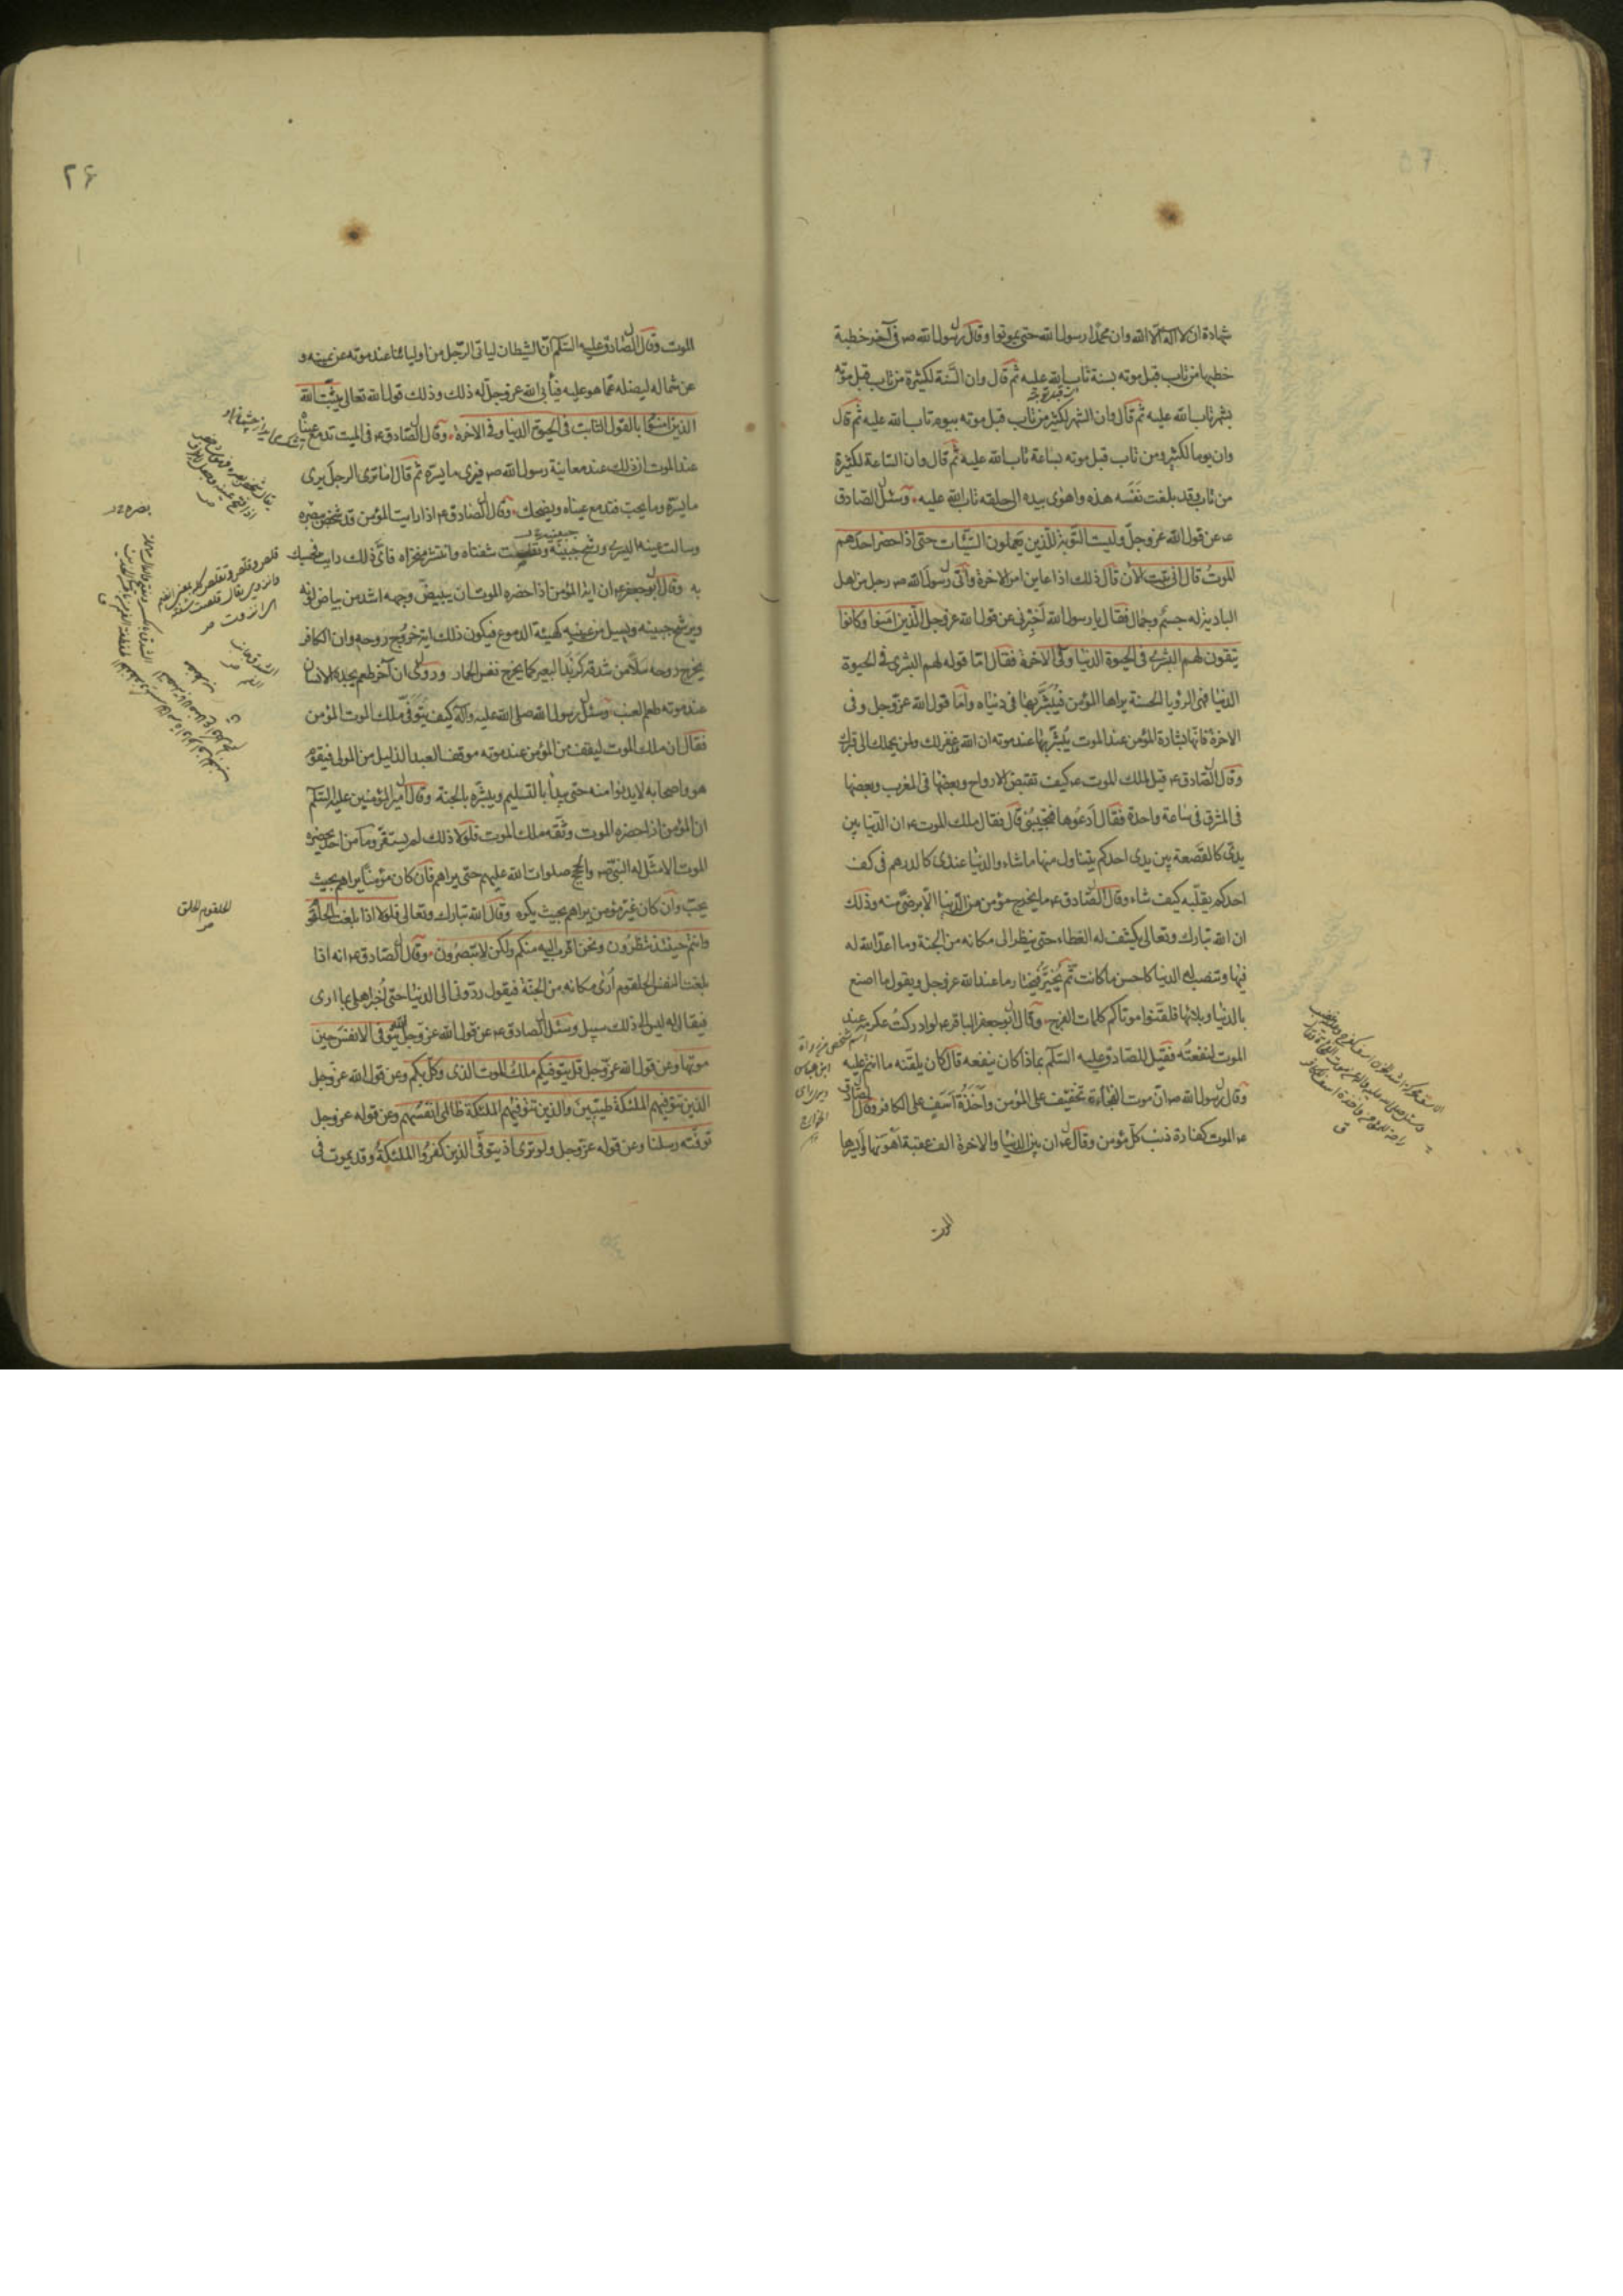 شهادة ان لا اله الا الله وان محمدا رسول الله حتى يموتوا وقال رسول الله ص في آخر خطبة
خطبها من تاب قبل موته بسنة تاب الله عليه ثم قال وان السنة لكثيرة من تاب قبل موته
بشهر تاب الله عليه ثم قال وان الشهر لكثير من تاب قبل موته بيوم تاب الله عليه ثم قال
وان يوما لكثير ومن تاب قبل موته بساعة تاب الله عليه ثم قال وان الساعة لكثيرة
من تاب وقد بلغت نفسه هذه واهوى بيده الى حلقه تاب الله عليه وسئل الصادق
ع عن قول الله عز وجل وليست التوبة للذين يعملون السيئات حتى اذا حضر احدهم
الموت قال اني تبت الان قال ذلك اذا عاين امر الاخرة وأتى رسول الله ص رجل من اهل
البادية له جسم وجمال فقال يا رسول الله اخبرني عن قول الله عز وجل الذين امنوا وكانوا
يتقون لهم البشرى في الحيوة الدنيا وفي الاخرة فقال اما قوله لهم البشرى في الحيوة
الدنيا فهي الرؤيا الحسنة يراها المؤمن فيبشر بها في دنياه واما قول الله عز وجل وفي
الاخرة فانها بشارة المؤمن عند الموت يبشر بها عند موته ان الله غفر لك ولمن يحملك الى قبرك
وقال الصادق ع قيل لملك الموت ع كيف تقبض الارواح وبعضها في المغرب وبعضها
في المشرق في ساعة واحدة فقال ادعوها فتجيبني قال فقال ملك الموت ع ان الدنيا بين
يدي كالقصعة بين يدي احدكم يتناول منها ما شاء والدنيا عندي كالدرهم في كف
احدكم يقلبه كيف شاء وقال الصادق ع ما يخرج مؤمن من الدنيا الا برضى منه وذلك
ان الله تبارك وتعالى يكشف له الغطاء حتى ينظر الى مكانه من الجنة وما اعد الله له
فيها وتنصب له الدنيا كاحسن ما كانت ثم يخير فيختار ما عند الله عز وجل ويقول ما اصنع
بالدنيا وبلائها فلقنوا موتاكم كلمات الفرج وقال ابو جعفر الباقر ع لو ادركت عكرمة عند
الموت لنفعته فقيل للصادق عليه السلم بماذا كان ينفعه قال كان يلقنه ما انتم عليه
وقال رسول الله ص ان موت الفجاءة تخفيف على المؤمن وأخذة أسف على الكافر وقال الصادق
ع الموت كفارة ذنب كل مؤمن وقال ع ان بين الدنيا والاخرة الف عقبة اهونها وايسرها
اسم شخص من رواة
ابن عباس
الخوارج
الموت
۲۶
الموت وقال الصادق عليه السلم ان الشيطان لياتي الرجل من اوليائنا عند موته عن يمينه و
عن شماله ليضله عما هو عليه فيأبى الله عز وجل له ذلك وذلك قول الله تعالى يثبت الله
الذين امنوا بالقول الثابت في الحيوة الدنيا وفي الاخرة وقال الصادق ع في الميت تدمع عيناه
عند الموت ان ذلك عند معاينة رسول الله ص فيرى ما يسره ثم قال اما ترى الرجل يرى
ما يسره وما يحب فتدمع عيناه ويضحك وقال الصادق ع اذا رايت المؤمن قد شخص ببصره
وسالت عينه اليسرى ورشح جبينه وتقلصت شفتاه وانتشر منخراه فاي ذلك رايت فحسبك
به وقال ابو جعفر ع ان اية المؤمن اذا حضره الموت ان يبيض وجهه اشد من بياض لونه
ويرشح جبينه ويسيل من عينيه كهيئة الدموع فيكون ذلك اية خروج روحه وان الكافر
يخرج روحه سلا من شدقه كزبد البعير كما يخرج نفس الحمار وروي ان آخر طعم يجده الانسان
عند موته طعم العنب وسئل رسول الله صلى الله عليه وآله كيف يتوفى ملك الموت المؤمن
فقال ان ملك الموت ليقف من المؤمن عند موته موقف العبد الذليل من المولى فيقوم
هو واصحابه لا يدنوا منه حتى يبدأ بالتسليم ويبشره بالجنة وقال امير المؤمنين عليه السلم
ان المؤمن اذا حضره الموت وثقه ملك الموت فلولا ذلك لم يستقر وما من احد يحضره
الموت الا مثل له النبي ص والحجج صلوات الله عليهم حتى يراهم فان كان مؤمنا يراهم بحيث
يحب وان كان غير مؤمن يراهم بحيث يكره وقال الله تبارك وتعالى فلولا اذا بلغت الحلقوم
وانتم حينئذ تنظرون ونحن اقرب اليه منكم ولكن لا تبصرون وقال الصادق ع انه اذا
بلغت النفس الحلقوم أري مكانه من الجنة فيقول ردوني الى الدنيا حتى اخبر اهلي بما ارى
فيقال له ليس الى ذلك سبيل وسئل الصادق ع عن قول الله عز وجل الله يتوفى الانفس حين
موتها وعن قول الله عز وجل قل يتوفيكم ملك الموت الذي وكل بكم وعن قول الله عز وجل
الذين تتوفيهم الملئكة طيبين والذين تتوفيهم الملئكة ظالمي انفسهم وعن قوله عز وجل
توفته رسلنا وعن قوله عز وجل ولو ترى اذ يتوفى الذين كفروا الملئكة وقد يموت في
الحلقوم الحلق